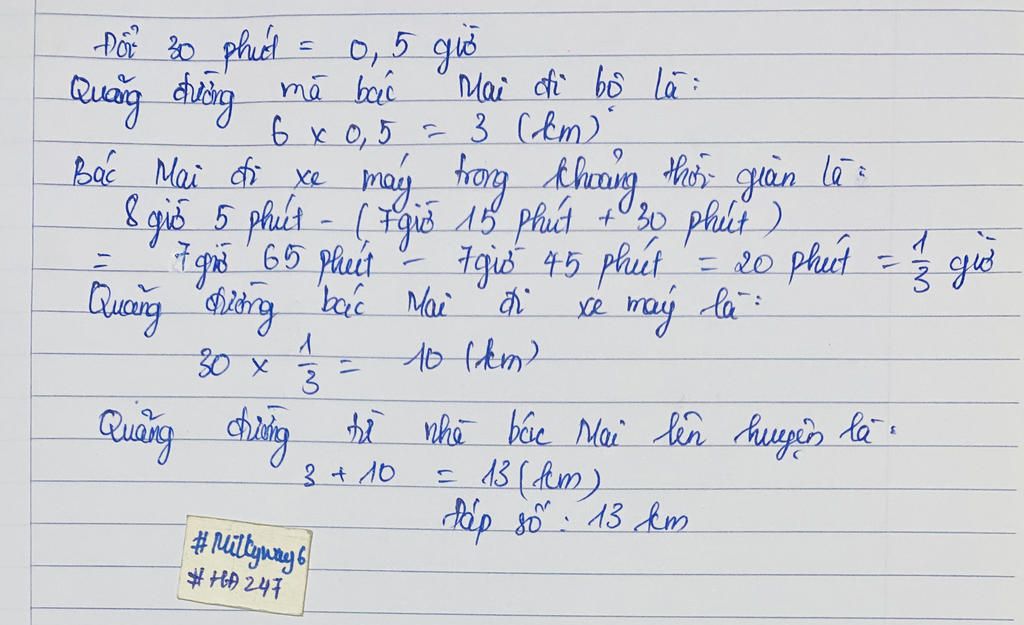 Đổi 30 phút = 0,5 giờ
Quãng đường mà bác Mai đi bộ là:
6 x 0,5 = 3 (km)
Bác Mai đi xe máy trong khoảng thời gian là:
8 giờ 5 phút - (7 giờ 15 phút + 30 phút)
= 7 giờ 65 phút - 7 giờ 45 phút = 20 phút = 1/3 giờ
Quãng đường bác Mai đi xe máy là:
30 x 1/3 = 10 (km)
Quãng đường từ nhà bác Mai lên huyện là:
3 + 10 = 13 (km)
Đáp số: 13 km
#Milkyway6
#HĐ247